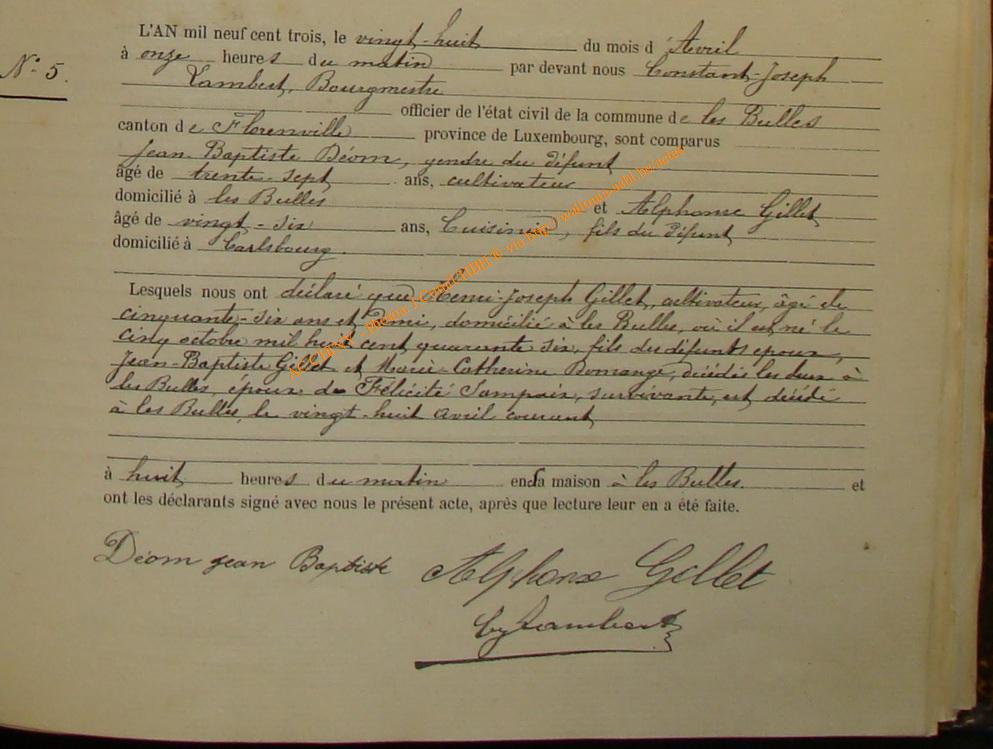 L'AN mil neuf cent trois, le vingt-huit du mois d'Avril
à onze heures du matin par devant nous Constant-Joseph
N° 5.
Lambert, Bourgmestre
officier de l'état civil de la commune de les Bulles
canton de Florenville province de Luxembourg, sont comparus
Jean-Baptiste Déom, gendre du défunt
âgé de trente-sept ans, cultivateur
domicilié à les Bulles et Alphonse Gillet
âgé de vingt-six ans, Cuisinier, fils du défunt
domicilié à Carlsbourg.
Lesquels nous ont déclaré que Henri-Joseph Gillet, cultivateur, âgé de
cinquante-six ans et demi, domicilié à les Bulles, où il est né le
cinq octobre mil huit cent quarante six, fils des défunts époux,
Jean-Baptiste Gillet et Marie-Catherine décédés les deux à
les Bulles, époux de Félicité survivante, est décédé
à les Bulles, le vingt-huit avril courant
à huit heures du matin en sa maison à les Bulles. et
ont les déclarants signé avec nous le présent acte, après que lecture leur en a été faite.
Déom jean Baptiste Alphonse Gillet
Lambert